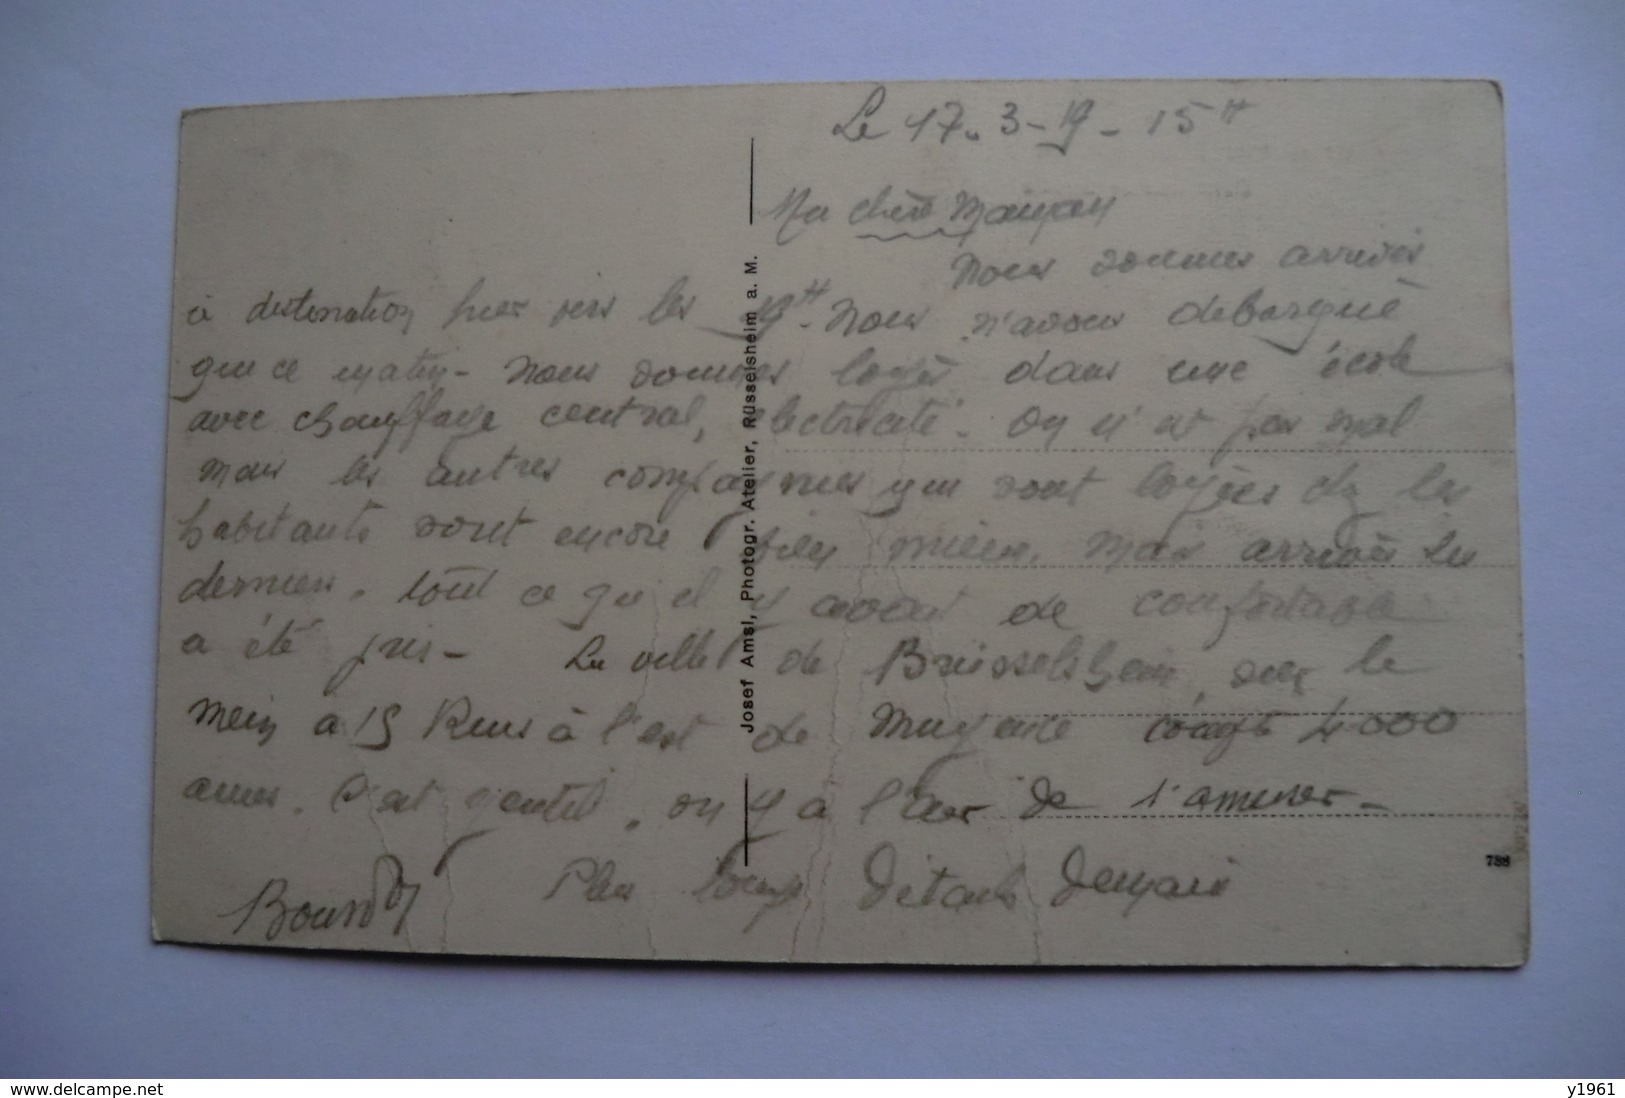 Le 17-3-19 - 15H
Ma chère Maman
Nous sommes arrivés
à destination hier vers les 19H. Nous n'avons debarqué
que ce matin - Nous sommes logés dans une école
avec chauffage central, electricité. On n'est pas mal
mais les autres compagnies qui sont logées chz les
habitants sont encore bien mieux. Mais arrivés les
derniers. tout ce qu'il y avait de confortable
a été pris - La ville de Brüsselsheim, sur le
Mein a 15 Kms à l'est de Mayence 4000
ames. C'est gentil. on y a l'air de s'amuser -
Plus longs détails demain
Josef Amsl, Photogr. Atelier, Rüsselsheim a. M.
788
www.delcampe.net
y1961